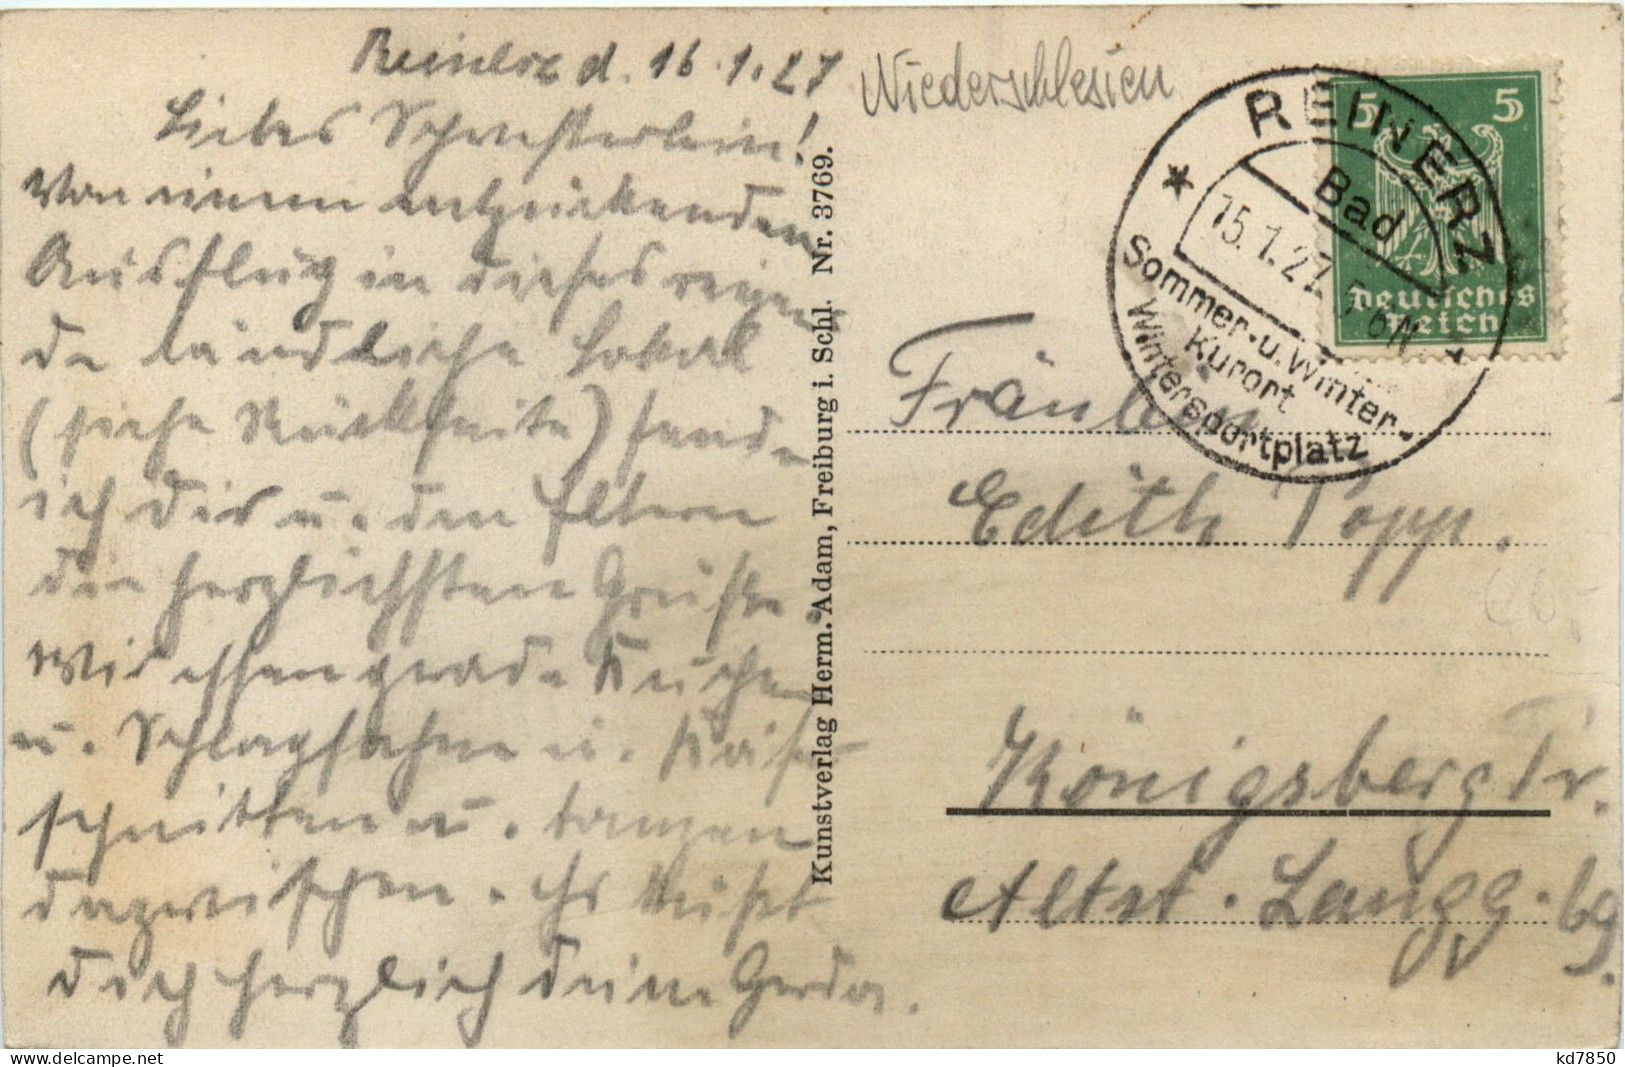 Reinerz d. 16.1.27
Liebes Schwesterlein!
Von einem entzückenden
Ausflug in dieses reizen-
de ländliche Lokal
(siehe Rückseite) sende
ich dir u. den Eltern
die herzlichsten Grüße.
Wir essen grade Kuchen
u. Schlagsahne u. Käse-
schnitten u. tanzen
dazwischen. Es küßt
dich herzlich deine Gerda.
Kunstverlag Herm. Adam, Freiburg i. Schl. Nr. 3769.
Niederschlesien
REINERZ
Bad
15.1.27. 5-6N.
Sommer- u. Winter-
Kurort
Wintersportplatz
5 5
Deutsches
Reich
Fräulein
Edith Popp.
Königsberg Pr.
Altst. Langg. 69.
kd7850